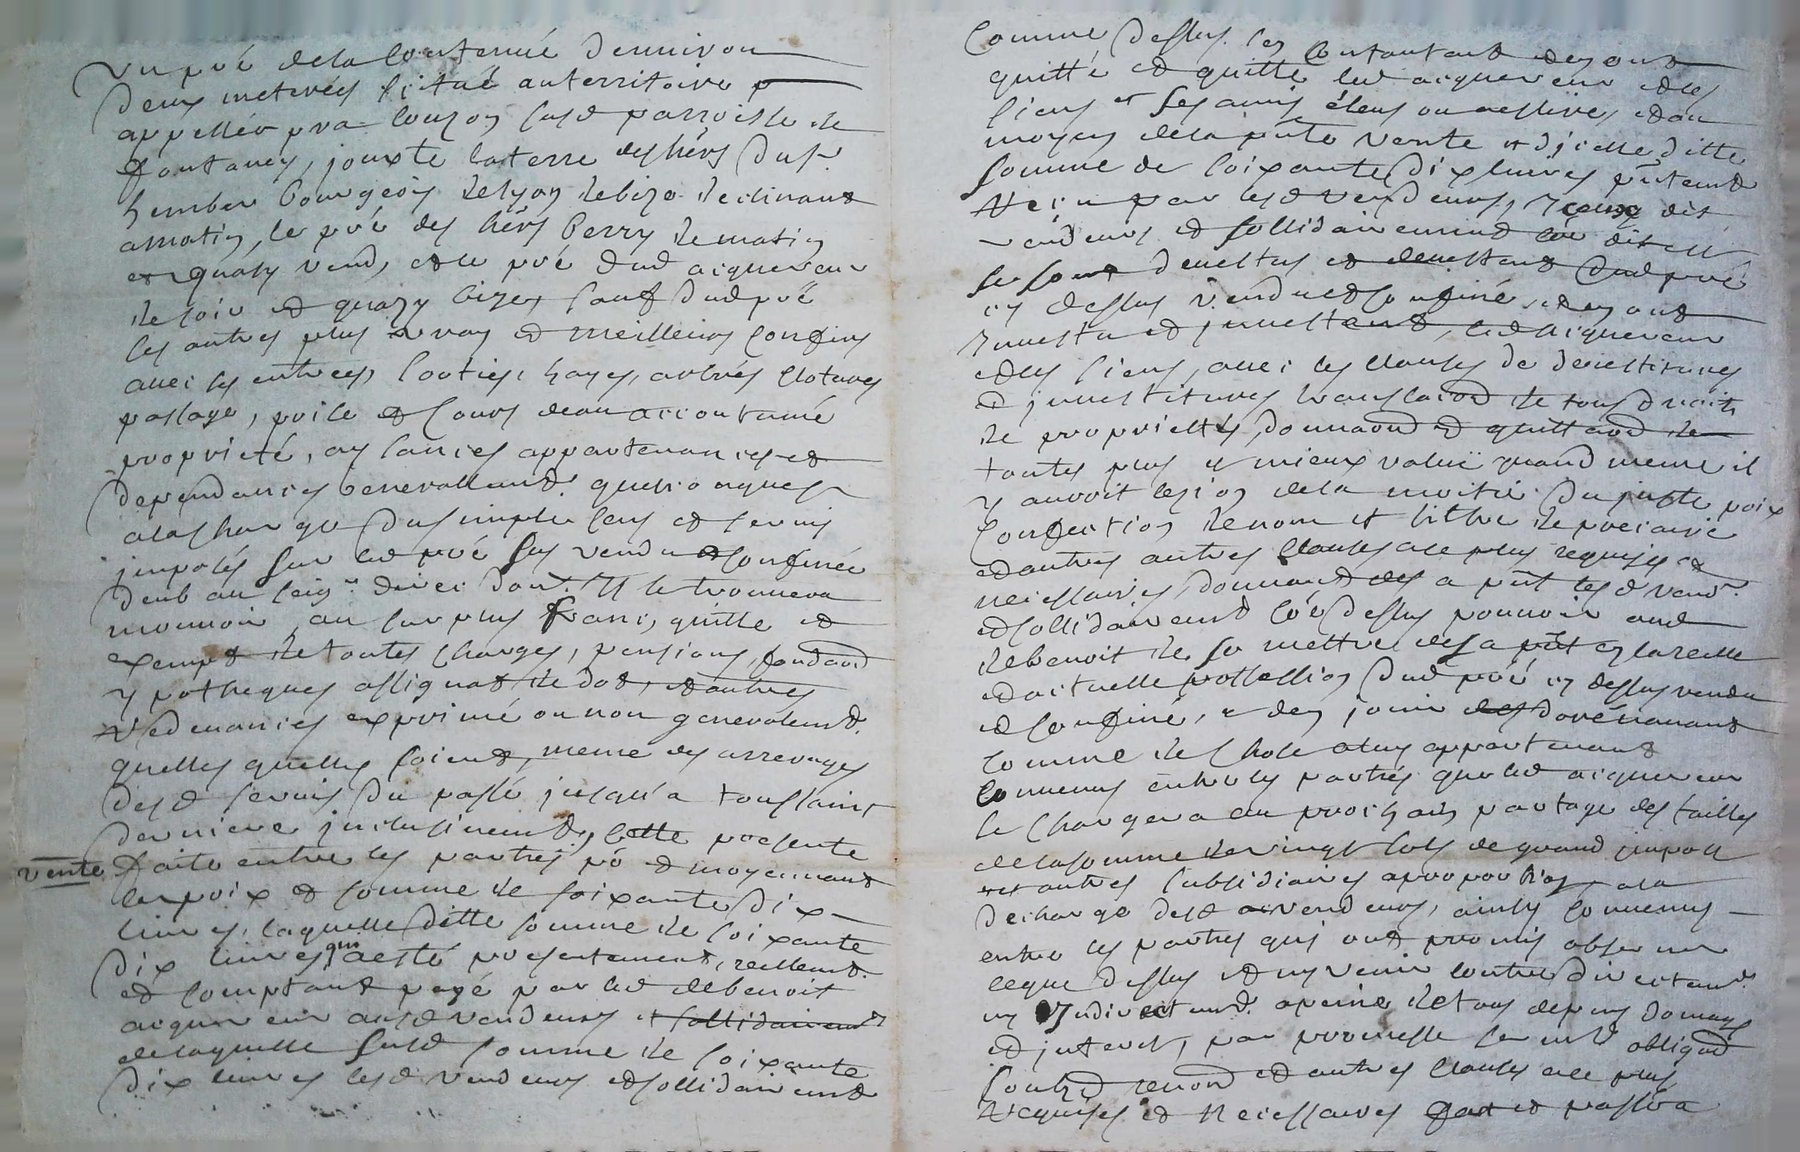 un pré de la contenue d'environ
deux meterées situé au territoire
appellée pra louzon susd parroisse de
fontanes, jouxte la terre des hérs du sr
humber bourgeois de lyon de bize declinant
a matin, le pré des hérs berry de matin
et quasy vend, et le pré dud acquereur
de soir et quazy bize, sauf dud pré
les autres plus vray et meilleurs confins
avec ses entrees, sorties, hayes, arbres clotures
passage, prise et cours deau accoutumé
proprieté, aysances appartenances et
dependances generallemt quelconques
a la charge du simple cens et servis
imposés sur led pré sus vendu et confinée
deub au seigr direct dont il se trouvera
mouvoir, au surplus franc, quitte et
exempt de toutes charges, pensions, fondaon
ypotheques assignat de dot, et autres
redevances exprimé ou non generalemt
quelles quelles soient, meme des arrerages
desd servis du passé jusqu'a toussaint
derniere inclusivemt, cette presente
vente faite entre les parties pó et moyennant
le prix et somme de soixante dix
livres, laquelle ditte somme de soixante
dix livres qui a esté presentement, reellemt
et comptant payé par led debenoit
acquereur ausd vendeurs et sollidairemt
de laquelle susd somme de soixante
dix livres lesd vendeurs et sollidairemt
comme dessus les contantant en ont
quitté et quitte led acquereur et les
siens et ses amis éleus ou a eslire, et au
moyen de la pnte vente et d'icelle ditte
somme de soixante dix livres pntemt
recu par lesd vendeurs, iceux dit
vendeurs et sollidairement
se sont devestus et devestent dud pré
cy dessus vendu et confiné, et en ont
investu et investent, led acquereur
et les siens, avec les clauses de devestitures
et investitures translaon de tous droits
de proprietés, donnaon et quittaon de
toutes plus et mieux valué quand meme il
y auroit lezion de la moitié du juste prix
confection de nom et tiltre de precaire
et autres autres clauses a ce plus requises et
necessaires, donnant des a pnt lesd vendrs
et sollidairemt coe dessus pouvoir aud
debenoit de se mettre des a pnt en la reelle
et actuelle possession dud pré cy dessus vendu
et confiné, et den jouir dorénavant
comme de chose a luy appartenant
convenus entre les parties que led acquereur
se chargera au prochain partage des tailles
de la somme de vingt sols de grand impost
et autres subsidiaires a proportion, a la
decharge desd vendeurs, ainsy convenus
entre les parties qui ont promis observer
ce que dessus et ny venir contre directemt
ny indirectemt a peine de tous depens domages
et interets, par promesse sermt obligaon
soubmd renon et autres clauses a ce plus
requises et necessaires fait et passé a